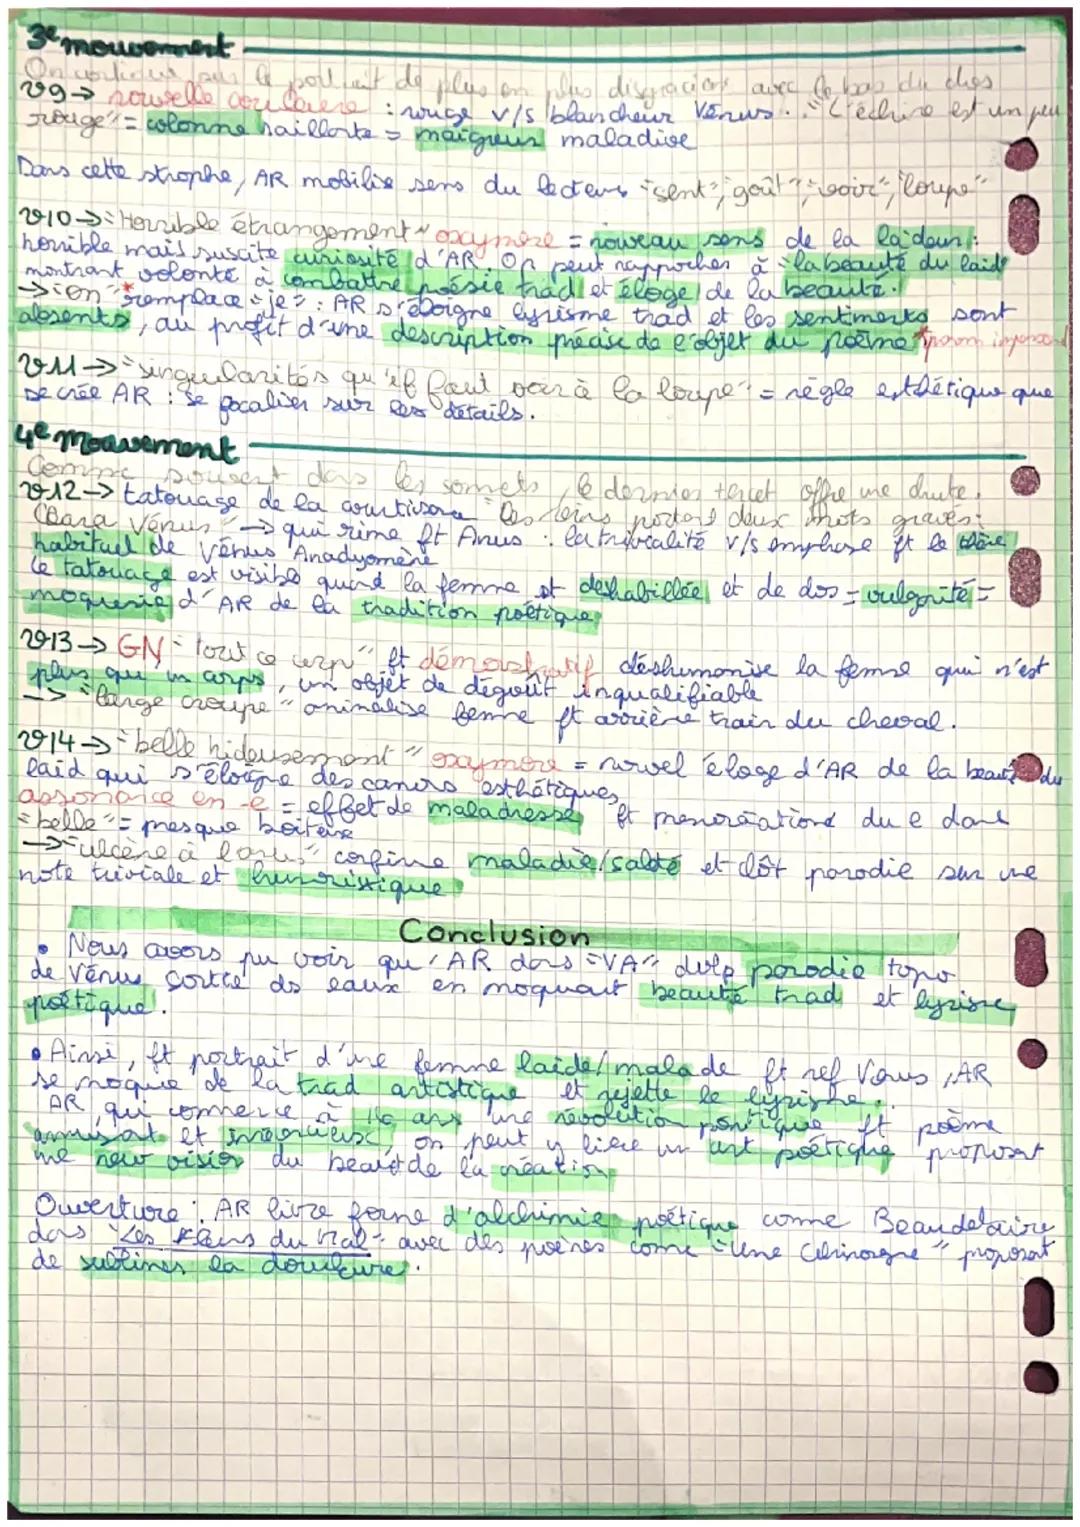 3e mouvement
On continue sur le portrait de plus en plus disgracieux avec le bas du dos
v9 → nouvelle couleur : rouge v/s blancheur Vénus.. "L'échine est un peu
rouge" = colonne saillante = maigreur maladive
Dans cette strophe, AR mobilise sens du lecteur "sent", "goût", "voir", "loupe"
v10 → "Horrible étrangement" oxymore = nouveau sens de la laideur :
horrible mais suscite curiosité d'AR. On peut rapprocher à "la beauté du laid"
montrant volonté à combattre poésie trad et éloge de la beauté.
→ "on"* remplace "je" : AR s'éloigne lyrisme trad et les sentiments sont
absents, au profit d'une description précise de l'objet du poème *pronom
v11 → "singularités qu'il faut voir à la loupe" = règle esthétique que
se crée AR : se focaliser sur les détails.
4e mouvement
Comme souvent dans les sonnets, le dernier tercet offre une chute.
v12 → tatouage de la courtisane "Les reins portent deux mots gravés :
Clara Vénus" → qui rime ft Anus : la trivialité v/s emphase ft le thème
habituel de Vénus Anadyomène
le tatouage est visible quand la femme est deshabillée et de dos = vulgarité =
moquerie d'AR de la tradition poétique
v13 → GN "tout ce corps" ft démonstratif déshumanise la femme qui n'est
plus que un corps, un objet de dégoût inqualifiable
→ "large croupe" animalise femme ft arrière train du cheval.
v14 → "belle hideusement" oxymore = nouvel éloge d'AR de la beauté du
laid qui s'éloigne des canons esthétiques
assonance en -e = effet de maladresse ft prononciation du e dans
"belle" = presque boiteux
→ "ulcère à l'anus" confirme maladie/saleté et clôt parodie sur une
note triviale et humoristique
Conclusion
• Nous avons pu voir que AR dans "VA" parodie topo
de Vénus sortie des eaux en moquant beauté trad et lyrisme
poétique.
• Ainsi, ft portrait d'une femme laide/malade ft ref Vénus, AR
se moque de la trad artistique et rejette le lyrisme.
AR, qui commence à 16 ans une révolution poétique ft poème
amusant et irrévérencieux, on peut y lire un art poétique proposant
une new vision du beau et de la création
Ouverture : AR livre forme d'alchimie poétique comme Beaudelaire
dans "Les Fleurs du Mal" avec des poèmes come "Une Charogne" proposant
de sublimer la douleur.